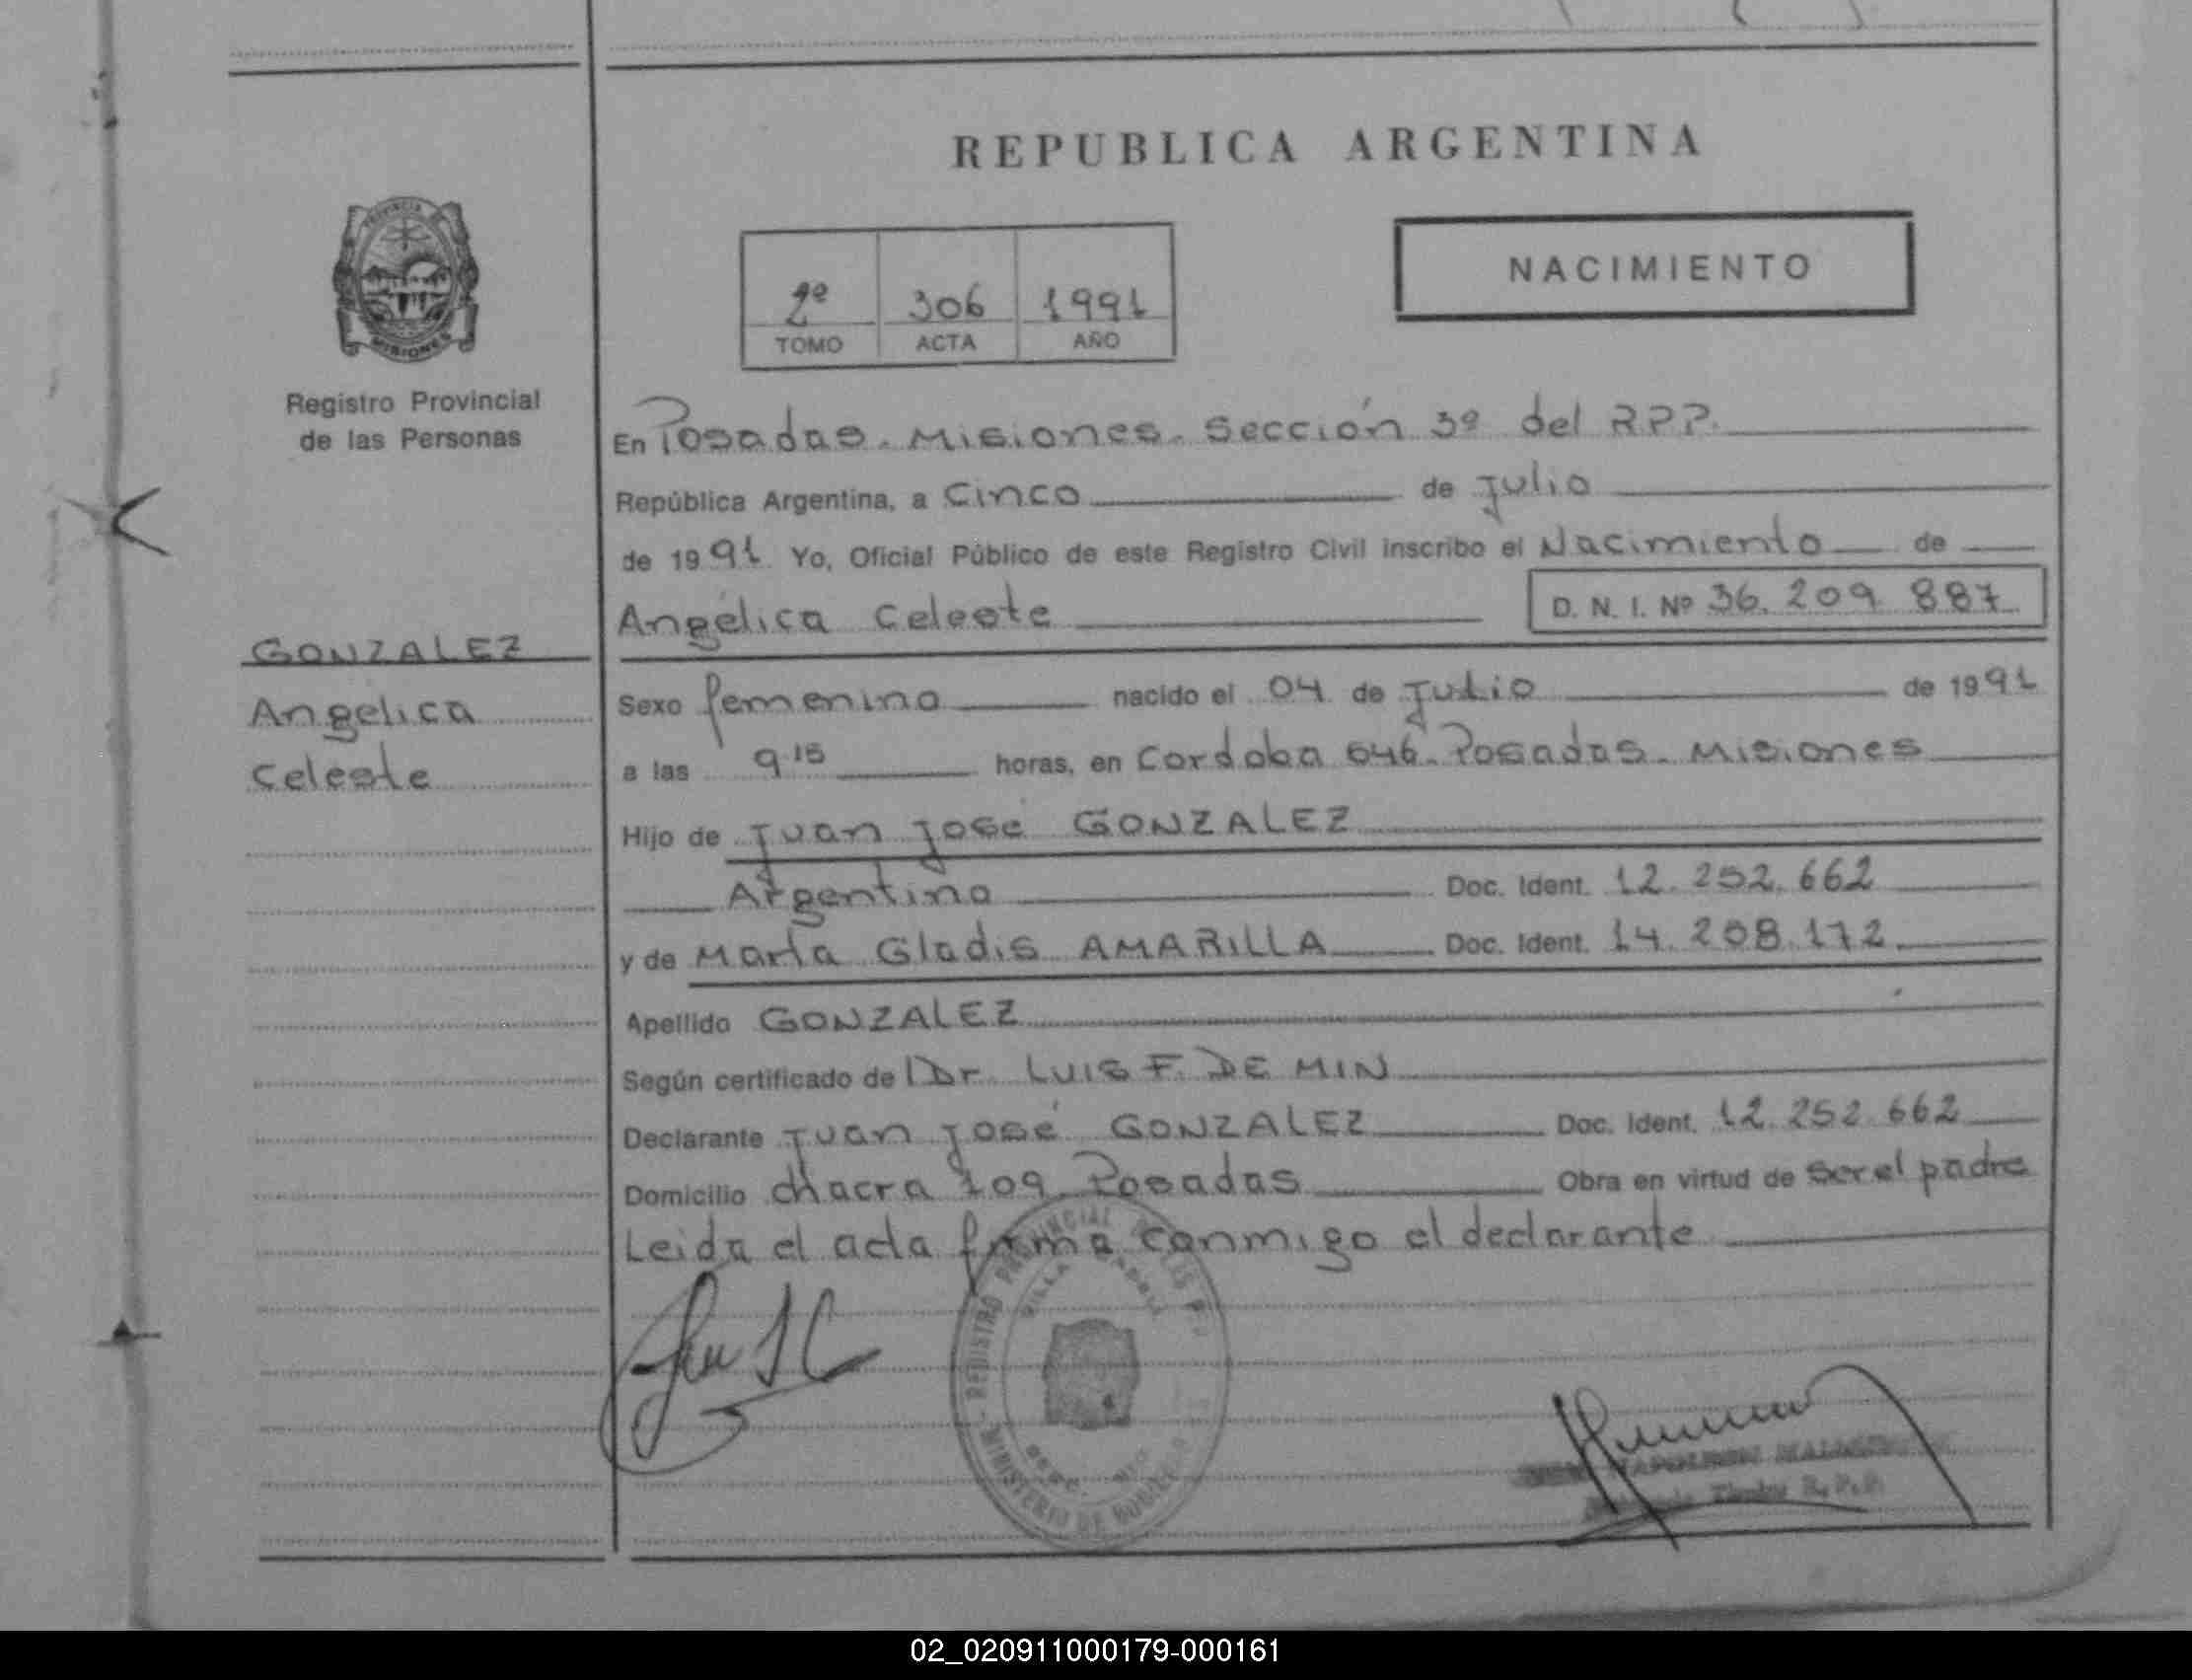 REPUBLICA ARGENTINA
PROVINCIA DE
MISIONES
Registro Provincial
de las Personas
2º 306 1991
TOMO ACTA AÑO
NACIMIENTO
En Posadas - Misiones - Sección 3º del RPP.
República Argentina, a Cinco de Julio
de 1991. Yo, Oficial Público de este Registro Civil inscribo el Nacimiento de
Angélica Celeste D. N. I. Nº 36. 209 887
GONZALEZ
Angelica
Celeste
Sexo femenino nacido el 04 de Julio de 1991
a las 9 15 horas, en Cordoba 646 - Posadas - Misiones
Hijo de Juan José GONZALEZ
Argentino Doc. Ident. 12. 252. 662
y de Marta Gladis AMARILLA Doc. Ident. 14. 208. 172
Apellido GONZALEZ
Según certificado de Dr. LUIS F. DE MIN
Declarante Juan José GONZALEZ Doc. Ident. 12. 252 662
Domicilio Chacra 109 Posadas Obra en virtud de Ser el padre
Leida el acta firma conmigo el declarante
REGISTRO PROVINCIAL DE LAS
MINISTERIO DE
R.P.P.
02_020911000179-000161